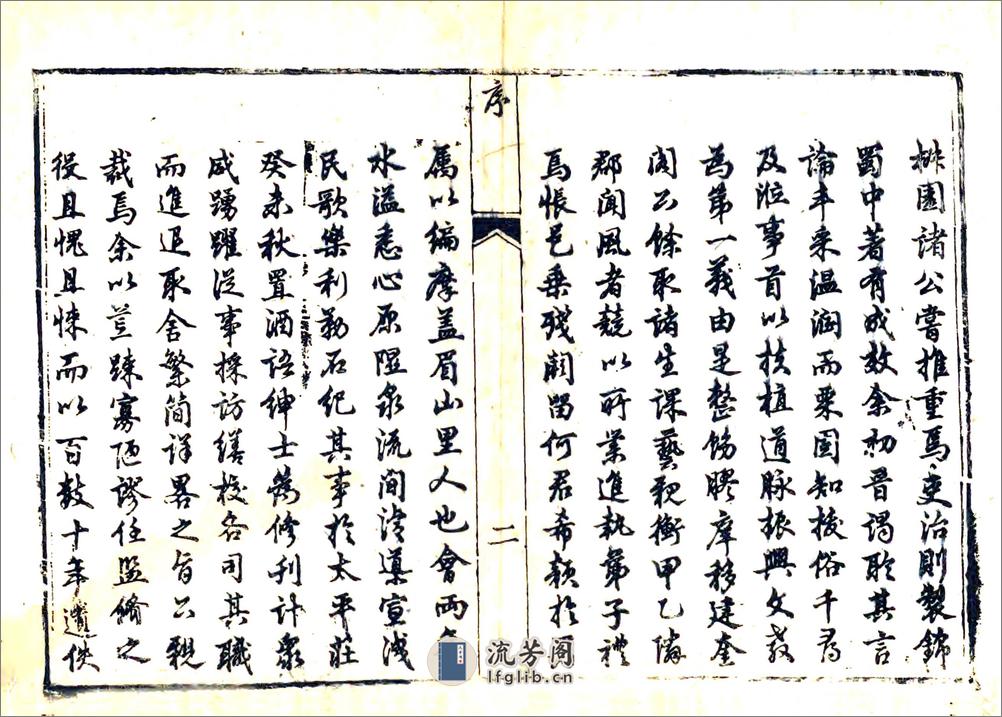 桃園諸公嘗推重焉吏治則製錦
蜀中著有成效余初晉謁聆其言
論丰采温潤而栗固知拔俗千尋
及涖事首以扶植道脉振興文教
為第一義由是整飭膠庠移建奎
閣公餘取諸生課藝親衡甲乙隣
郡聞風者競以所業進執弟子禮
焉悵邑乗殘闕留何君希顏於
屬以編摩盖眉山里人也會雨
水溢悉心原隰衆流澗濬導宣洩
民歌樂利勒石紀其事於太平莊
癸未秋置酒語紳士為修刊計衆
咸踴躍從事採訪繕校各司其職
而進退取舍繁簡詳畧之旨公親
裁焉余以荒踈寡陋謬任監脩之
役且愧且悚而以百數十年遺佚
序
二
流芳阁
lfglib.cn